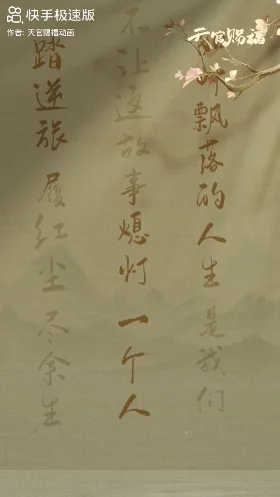 快手极速版
作者: 天官赐福动画
天官赐福
飘落的人生是我们
不让这故事熄灯一个人
踏逆旅履红尘尽余生